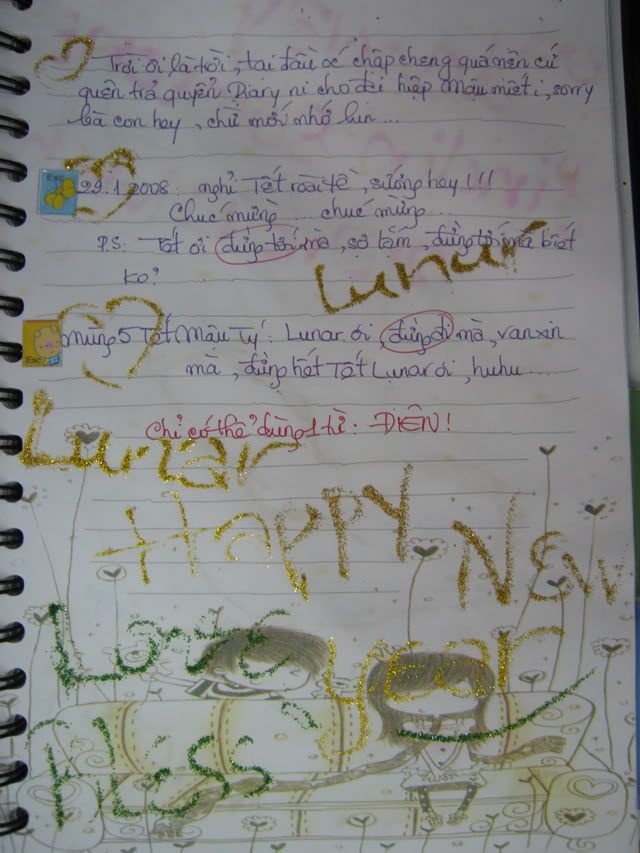 Trời ơi là trời, tại đầu óc chập cheng quá nên cứ
quên trả quyển Diary ni cho đại hiệp Mậu miết, sorry
bà con hey, chừ mới nhớ lun...
Esc
29.1.2008: nghỉ Tết rồi tề, sướng hey!!!
Chúc mừng... chúc mừng...
P.S: Tết ơi đừng tới mà, sợ lắm, đừng tới mà biết
ko?
Lunar
Esc
mùng 5 Tết Mậu Tý: Lunar ơi, đừng đi mà, van xin
mà, đừng hết Tết Lunar ơi, huhu...
Chỉ có thể dùng 1 từ: ĐIÊN!
Lunar
Happy New
Year
Love
Bless